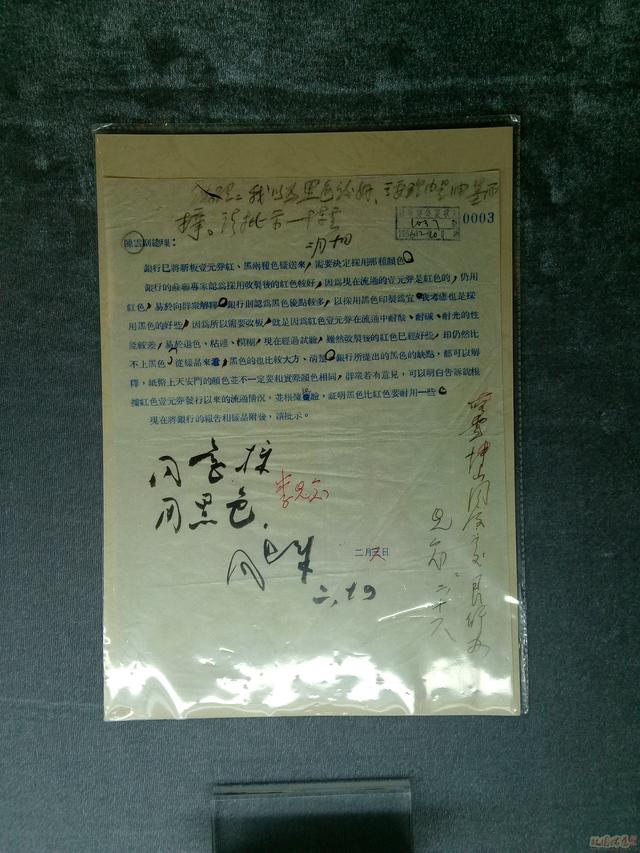 总理：我以为黑色较好，主要理由是由里面
择。请批示
二月十四
0003
陳雲副總理：
銀行已將新板壹元券紅、黑兩種色樣送來，需要决定採用那種顏色。
銀行的蘇聯專家認爲採用改製後的紅色較好，因爲現在流通的壹元券是紅色的，仍用
紅色，易於向群衆解釋。銀行則認爲黑色優點較多，以採用黑色印製爲宜。我考慮也是採
用黑色的好些，因爲所以需要改板，就是因爲紅色壹元券在流通中耐酸、耐碱、耐光的性
能較差，易於退色、粘連、模糊，現在經過試驗，雖然改製後的紅色已經好些，却仍然比
不上黑色。從樣品來看，黑色的也比較大方、清楚。銀行所提出的黑色的缺點，都可以解
釋，紙幣上天安門的顏色並不一定要和實際顏色相同，群衆若有意見，可以明白告訴說根
據紅色壹元券發行以來的流通情况，並根據實驗，証明黑色比紅色要耐用一些。
現在將銀行的報告和樣品附後，請批示。
同意採
用黑色，
李先念
周恩來
二月六日
二，十四
先念 二.十八